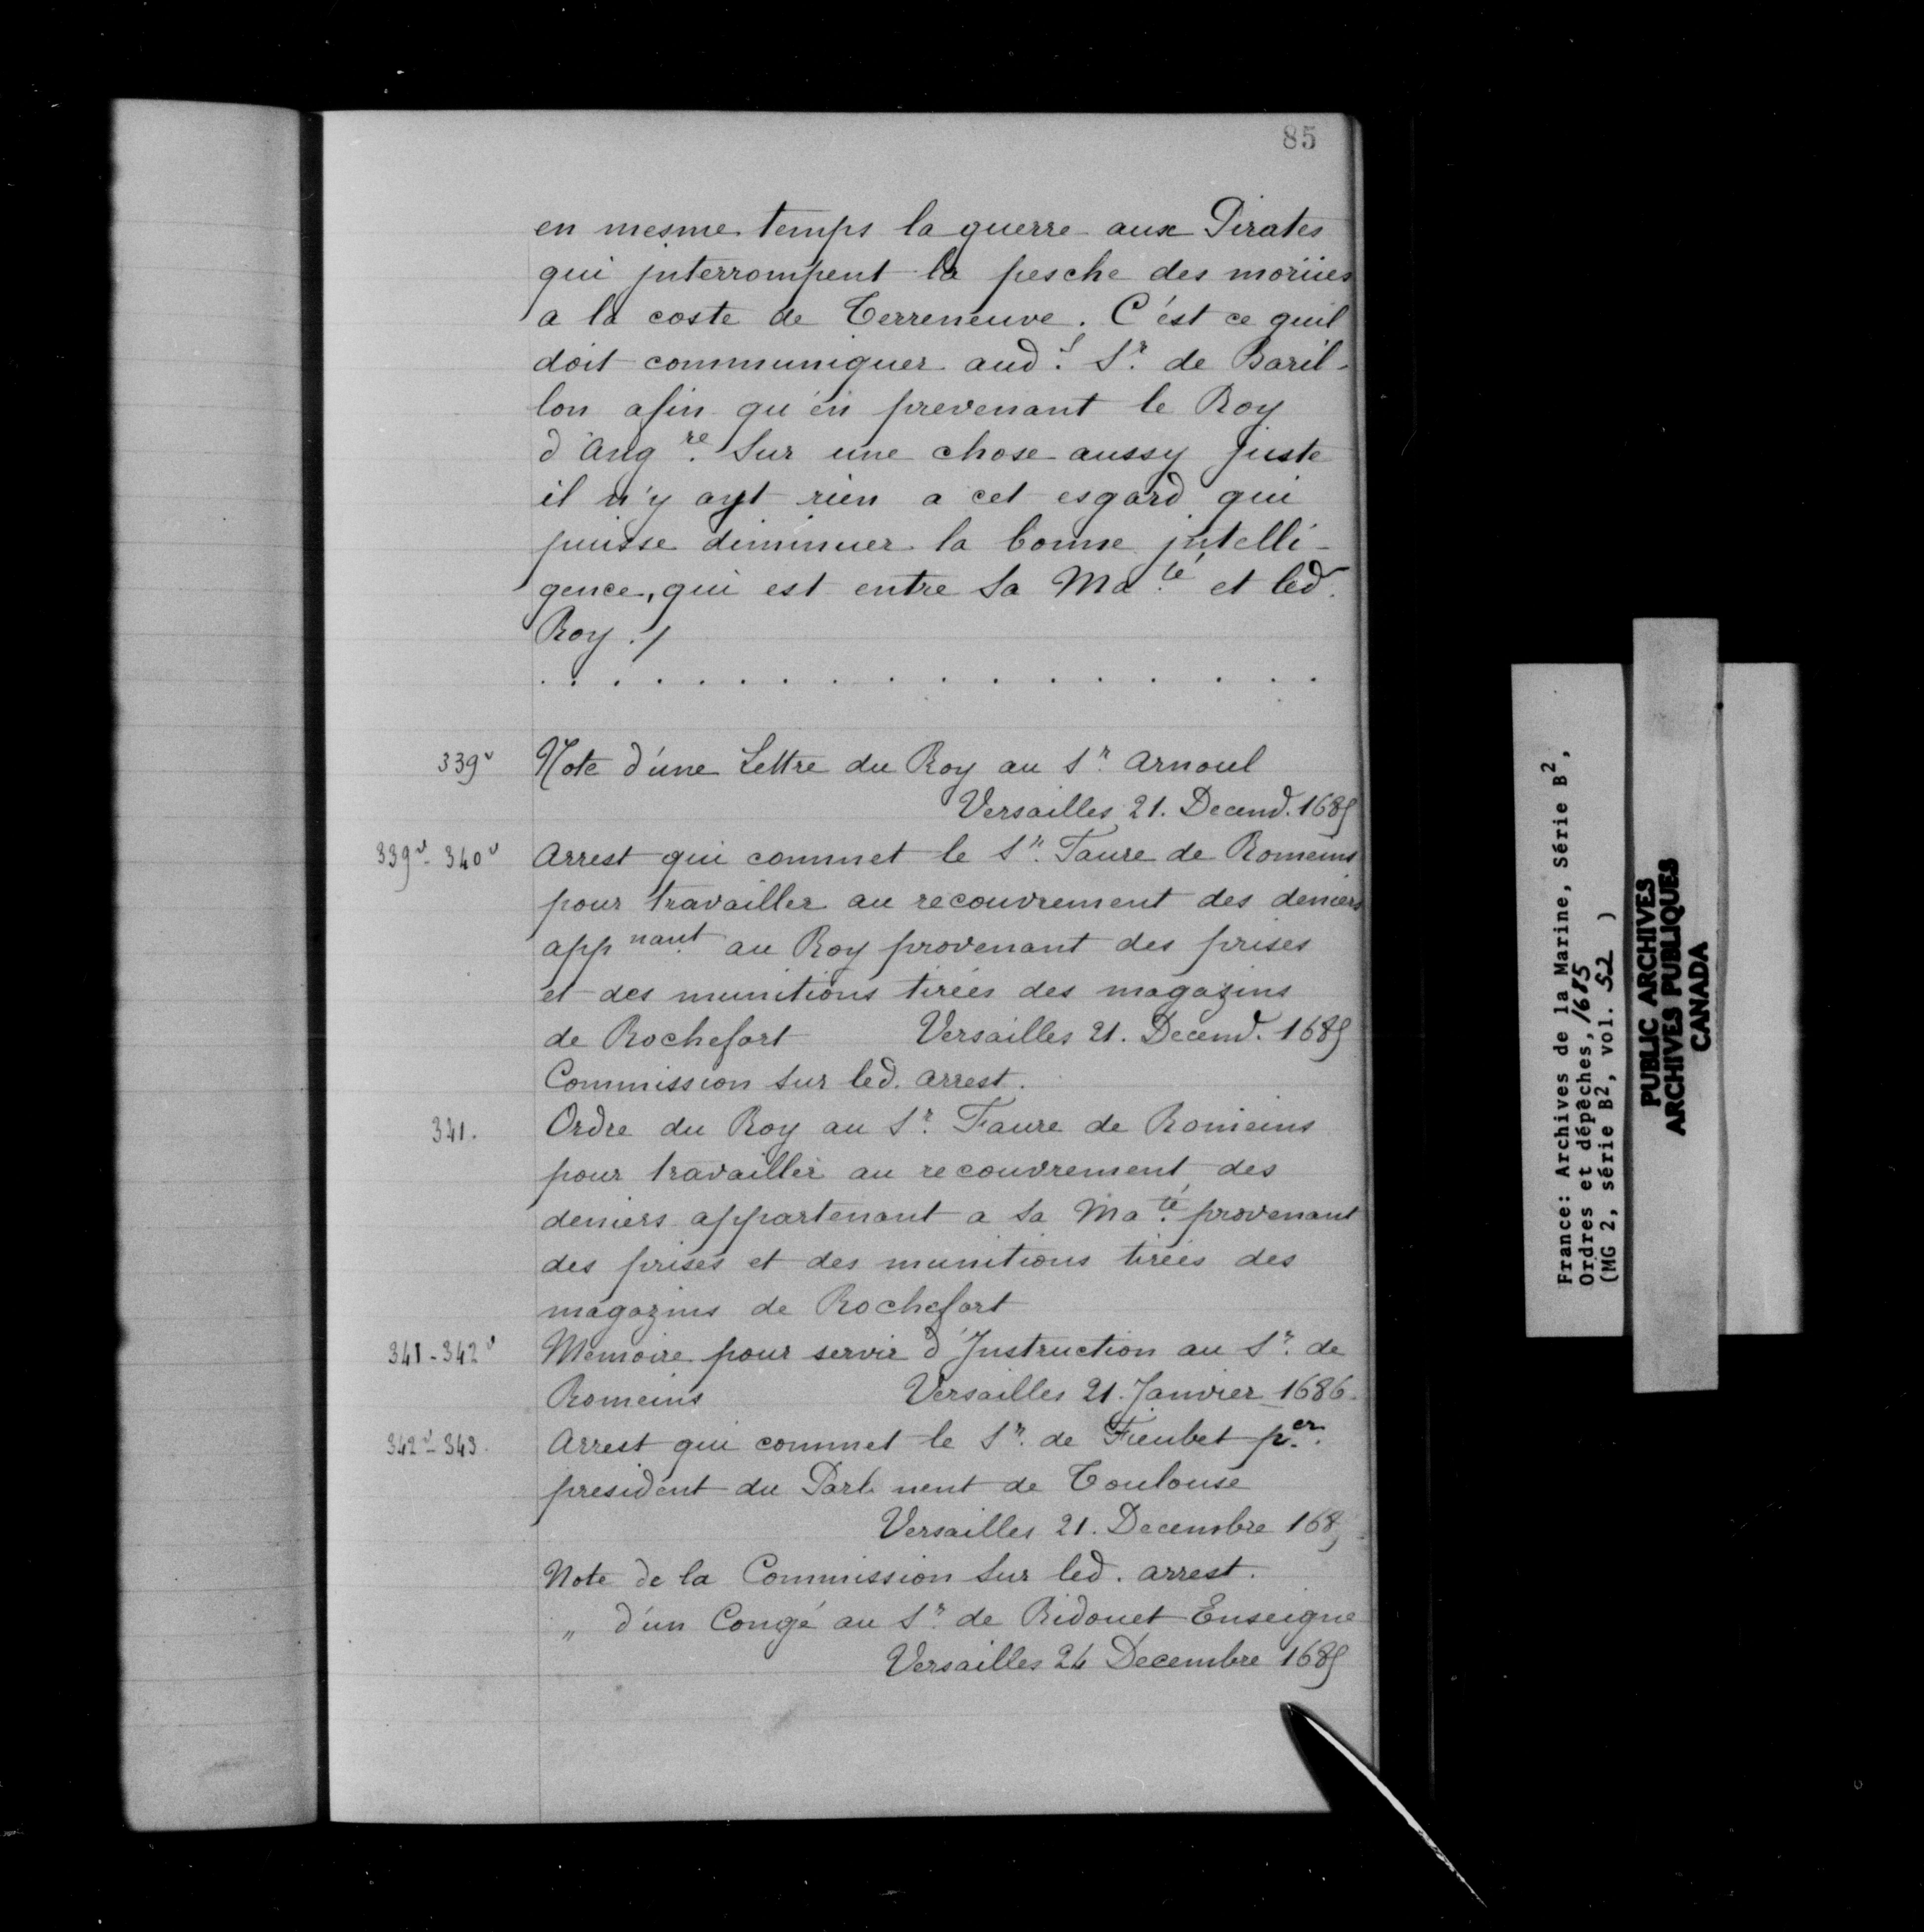 85
en mesme temps la guerre aux Pirates
qui jnterrompent la pesche des morües
a la coste de Terreneuve. C'est ce quil
doit communiquer aud. Sr. de Baril-
lon afin qu'en prevenant le Roy
d'Angre. Sur une chose aussy juste
il n'y ayt rien a cet esgard qui
puisse diminuer la bonne jntelli-
gence, qui est entre Sa Maté. et led.
Roy ./
. . . . . . . . . . . . . . . . .
339v Note d'une Lettre du Roy au Sr. Arnoul
Versailles 21. Decemb. 1685
339v-340v Arrest qui commet le Sr. Faure de Romeins
pour travailler au recouvrement des deniers
appnant. au Roy provenant des prises
et des munitions tirées des magazins
de Rochefort Versailles 21. Decemb. 1685
Commission Sur led. arrest.
341. Ordre du Roy au Sr. Faure de Romeins
pour travailler au recouvrement des
deniers appartenant a Sa Maté. provenant
des prises et des munitions tirées des
magazins de Rochefort
341-342v Memoire pour servir d'Jnstruction au Sr. de
Romeins Versailles 21. Janvier 1686.
342v-343. Arrest qui commet le Sr. de Fieubet per.
president du Parl nent de Toulouse
Versailles 21. Decembre 1685
Note de la Commission Sur led. arrest.
„ d'un Congé au Sr. de Ridouet Enseigne
Versailles 24 Decembre 1685
France: Archives de la Marine, Série B2,
Ordres et dépêches, 1685
(MG 2, série B2, vol. 52 )
PUBLIC ARCHIVES
ARCHIVES PUBLIQUES
CANADA